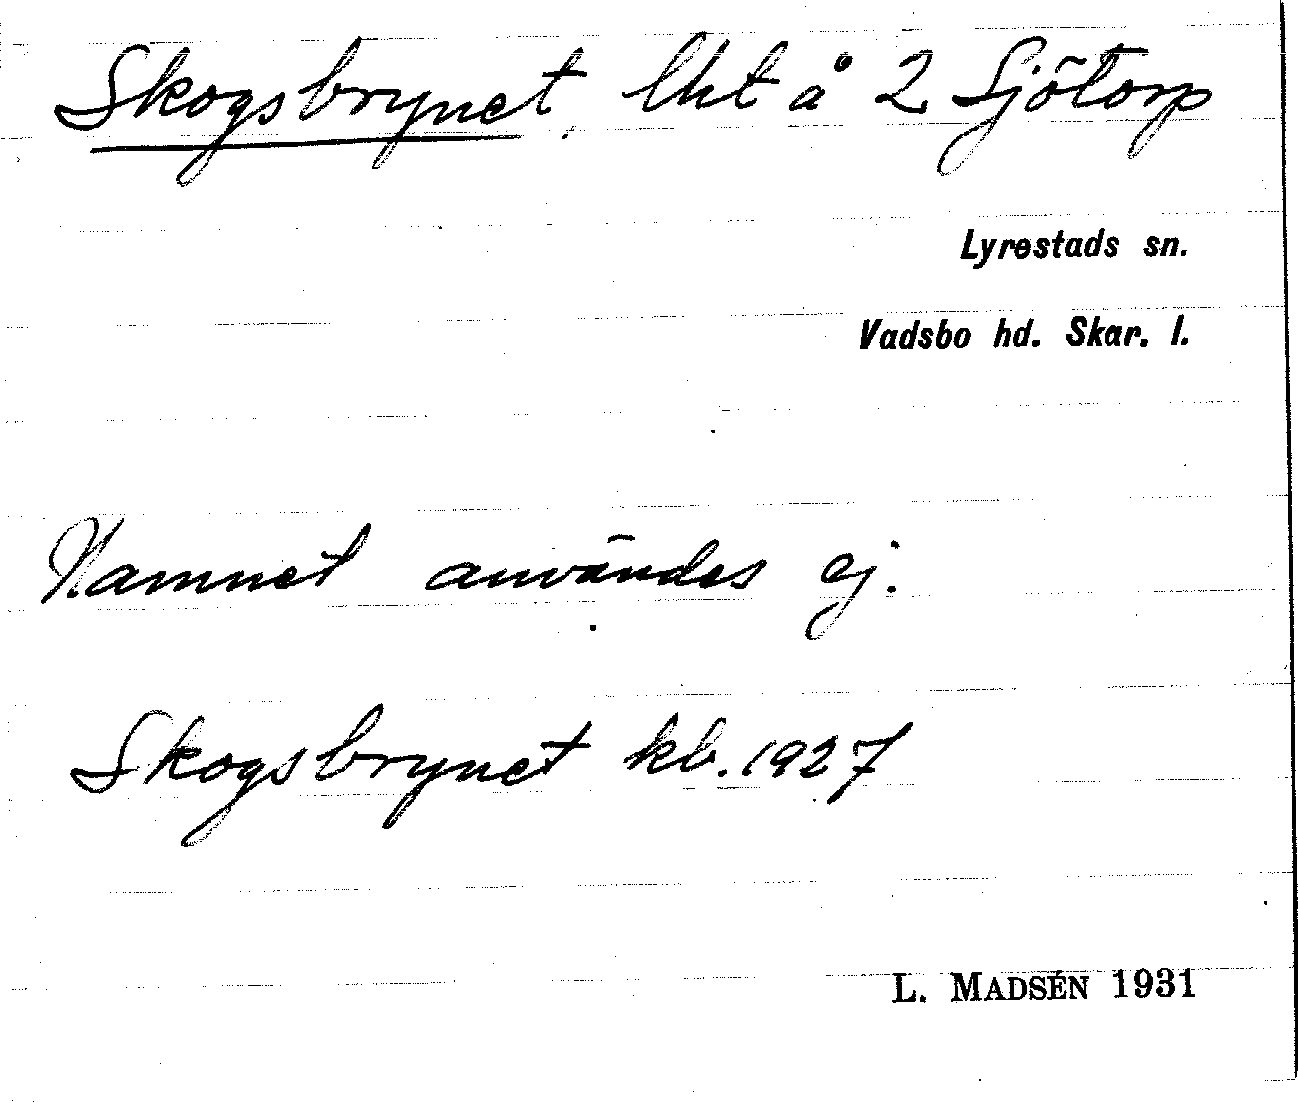 Skogsbrynet, lht å 2 Sjötorp
Lyrestads sn.
Vadsbo hd. Skar. l.
Namnet användes ej.
Skogsbrynet kb. 1927
L. MADSÉN 1931